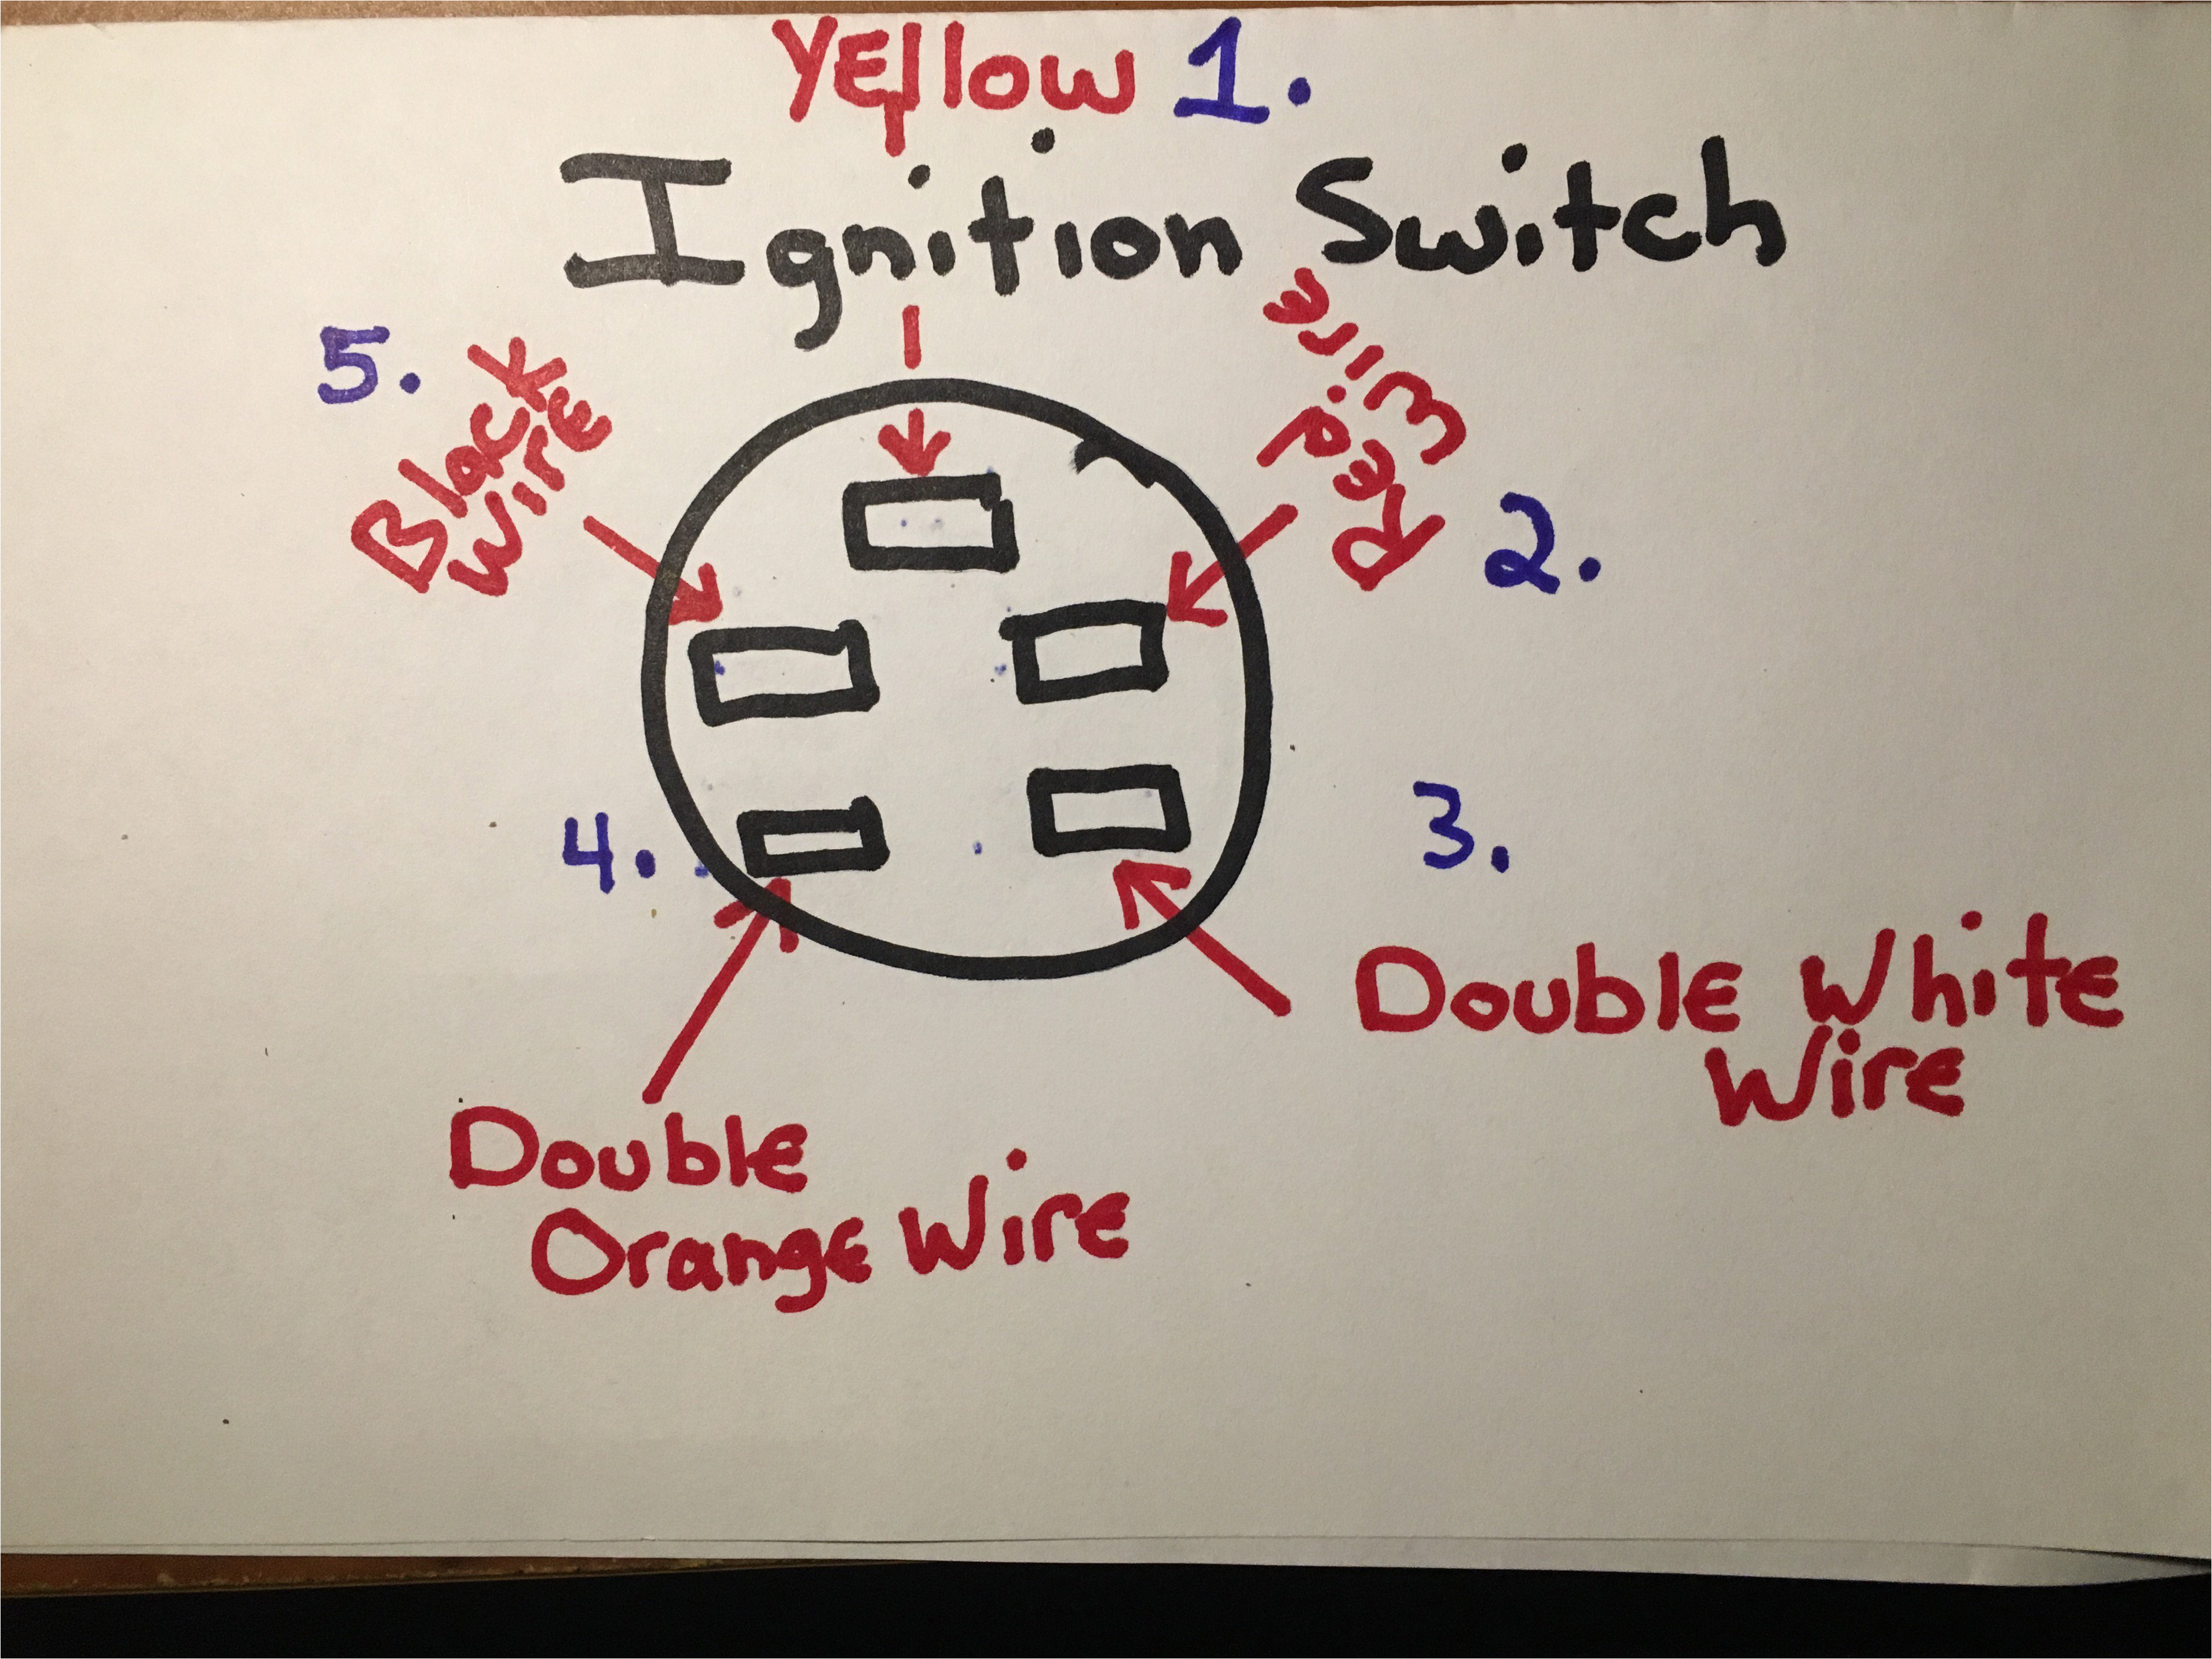 Yellow 1.
Ignition Switch
5.
Black
Wire
Red
Wire
2.
4.
3.
Double White
Wire
Double
Orange Wire